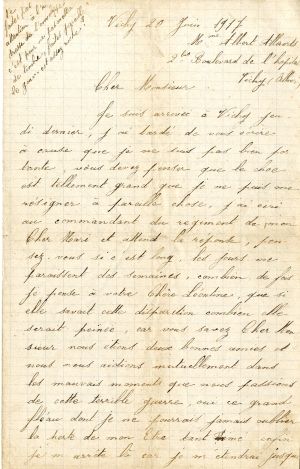 Vichy 20 Juin 1917
Mme Albert
Boulevard de l'hopital
Vichy (Allier)
Cher Monsieur
Je suis arrivée à Vichy jeu
di dernier, j'ai tardé de vous écrire
à cause que je ne suis pas bien por
tante, vous devez penser que le choc
est tellement grand que je ne puis me
résigner à pareille chose, j'ai écri
au commandant du regiment de mon
Cher Mari et attend la réponse, pen
sez vous si c'est long, les jours me
paraissent des semaines, combien de fois
je pense à votre Chère Léontine, que si
elle savait cette disparition combien elle
serait peinée, car vous savez Cher Mon
sieur nous étions deux bonnes amies et
nous nous aidions mutuellement dans
les mauvais moments que nous passions
de cette terrible guerre, oui ce grand
fléau dont je ne pourrais jamais oublier
la perte de mon Etre tant aimé enfin
je m'arrête là car je m'étendrai jusque